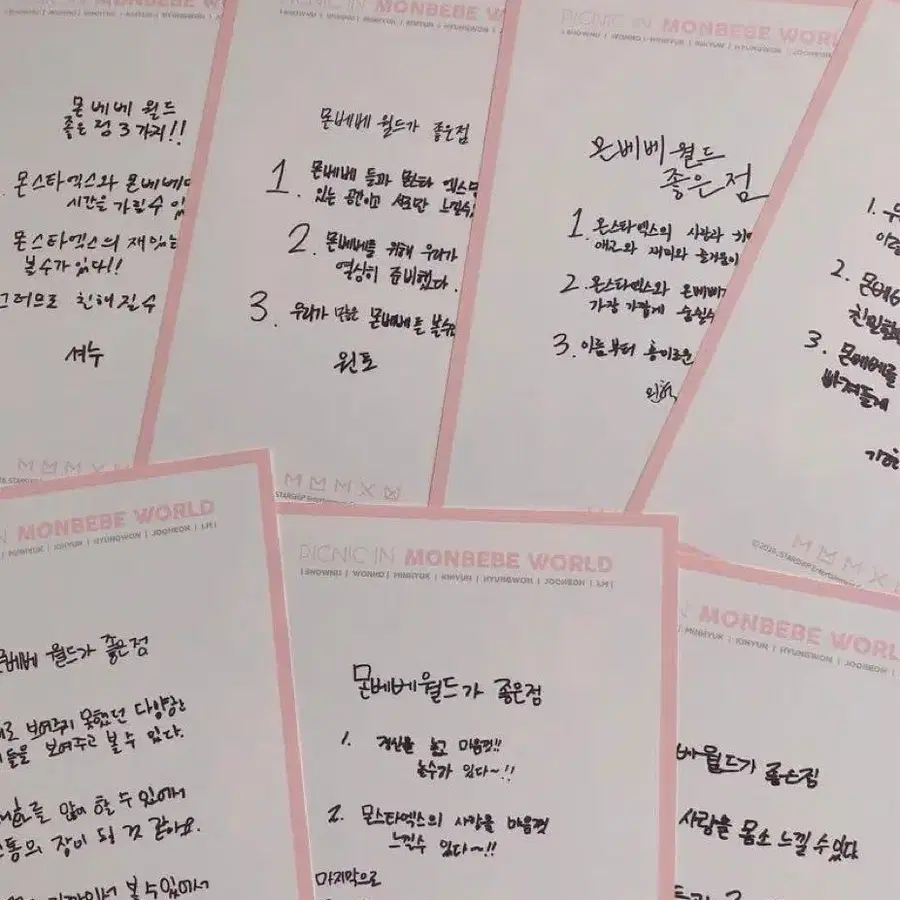 PICNIC IN MONBEBE W
몬베베 월드
좋은점 3가지!!
몬스타엑스와 몬베베
시간을 가질수 있
몬스타엑스의 재밌는
볼수가 있다!!
그러므로 친해질수
셔누
PICNIC IN MONBEBE W
몬베베 월드가 좋은점
1. 몬베베 들과 몬스타 엑스만
있는 공간이고 서로만 느낄수
2. 몬베베를 위해 우리가
열심히 준비했다.
3. 우리가 많은 몬베베를 볼수
원호
MMMXM
PICNIC IN MONBEBE WORL
| SHOWNU | WONHO | MINHYUK | KIHYUN | HYUNGWON | JOOHEON
몬베베 월드
좋은점
1. 몬스타엑스의 사랑과
애교와 재미와 즐거움이
2. 몬스타엑스와 몬베베가
가장 가깝게 숨쉴수
3. 이름부터 흥미로운
1.
2. 몬베
3. 몬베베를
빠져들게
MMMX
MONBEBE WORLD
MINHYUK | KIHYUN | HYUNGWON | JOOHEON | I.M |
베베 월드가 좋은점
로 보여주지 못했던 다양한
들을 보여주고 볼 수 있다.
많이 할 수 있어서
통의 장이 될 것 같아요.
볼 수 있어서
PICNIC IN MONBEBE WORLD
| SHOWNU | WONHO | MINHYUK | KIHYUN | HYUNGWON | JOOHEON | I.M |
몬베베월드가 좋은점
1. 정신을 놓고 마음껏!!
놀수가 있다~!!
2. 몬스타엑스의 사랑을 마음껏
느낄수 있다~!!
마지막으로
MONBEBE WORL
MINHYUK | KIHYUN | HYUNGWON | JOOHEON
월드가 좋은점
사랑을 몸소 느낄 수있다